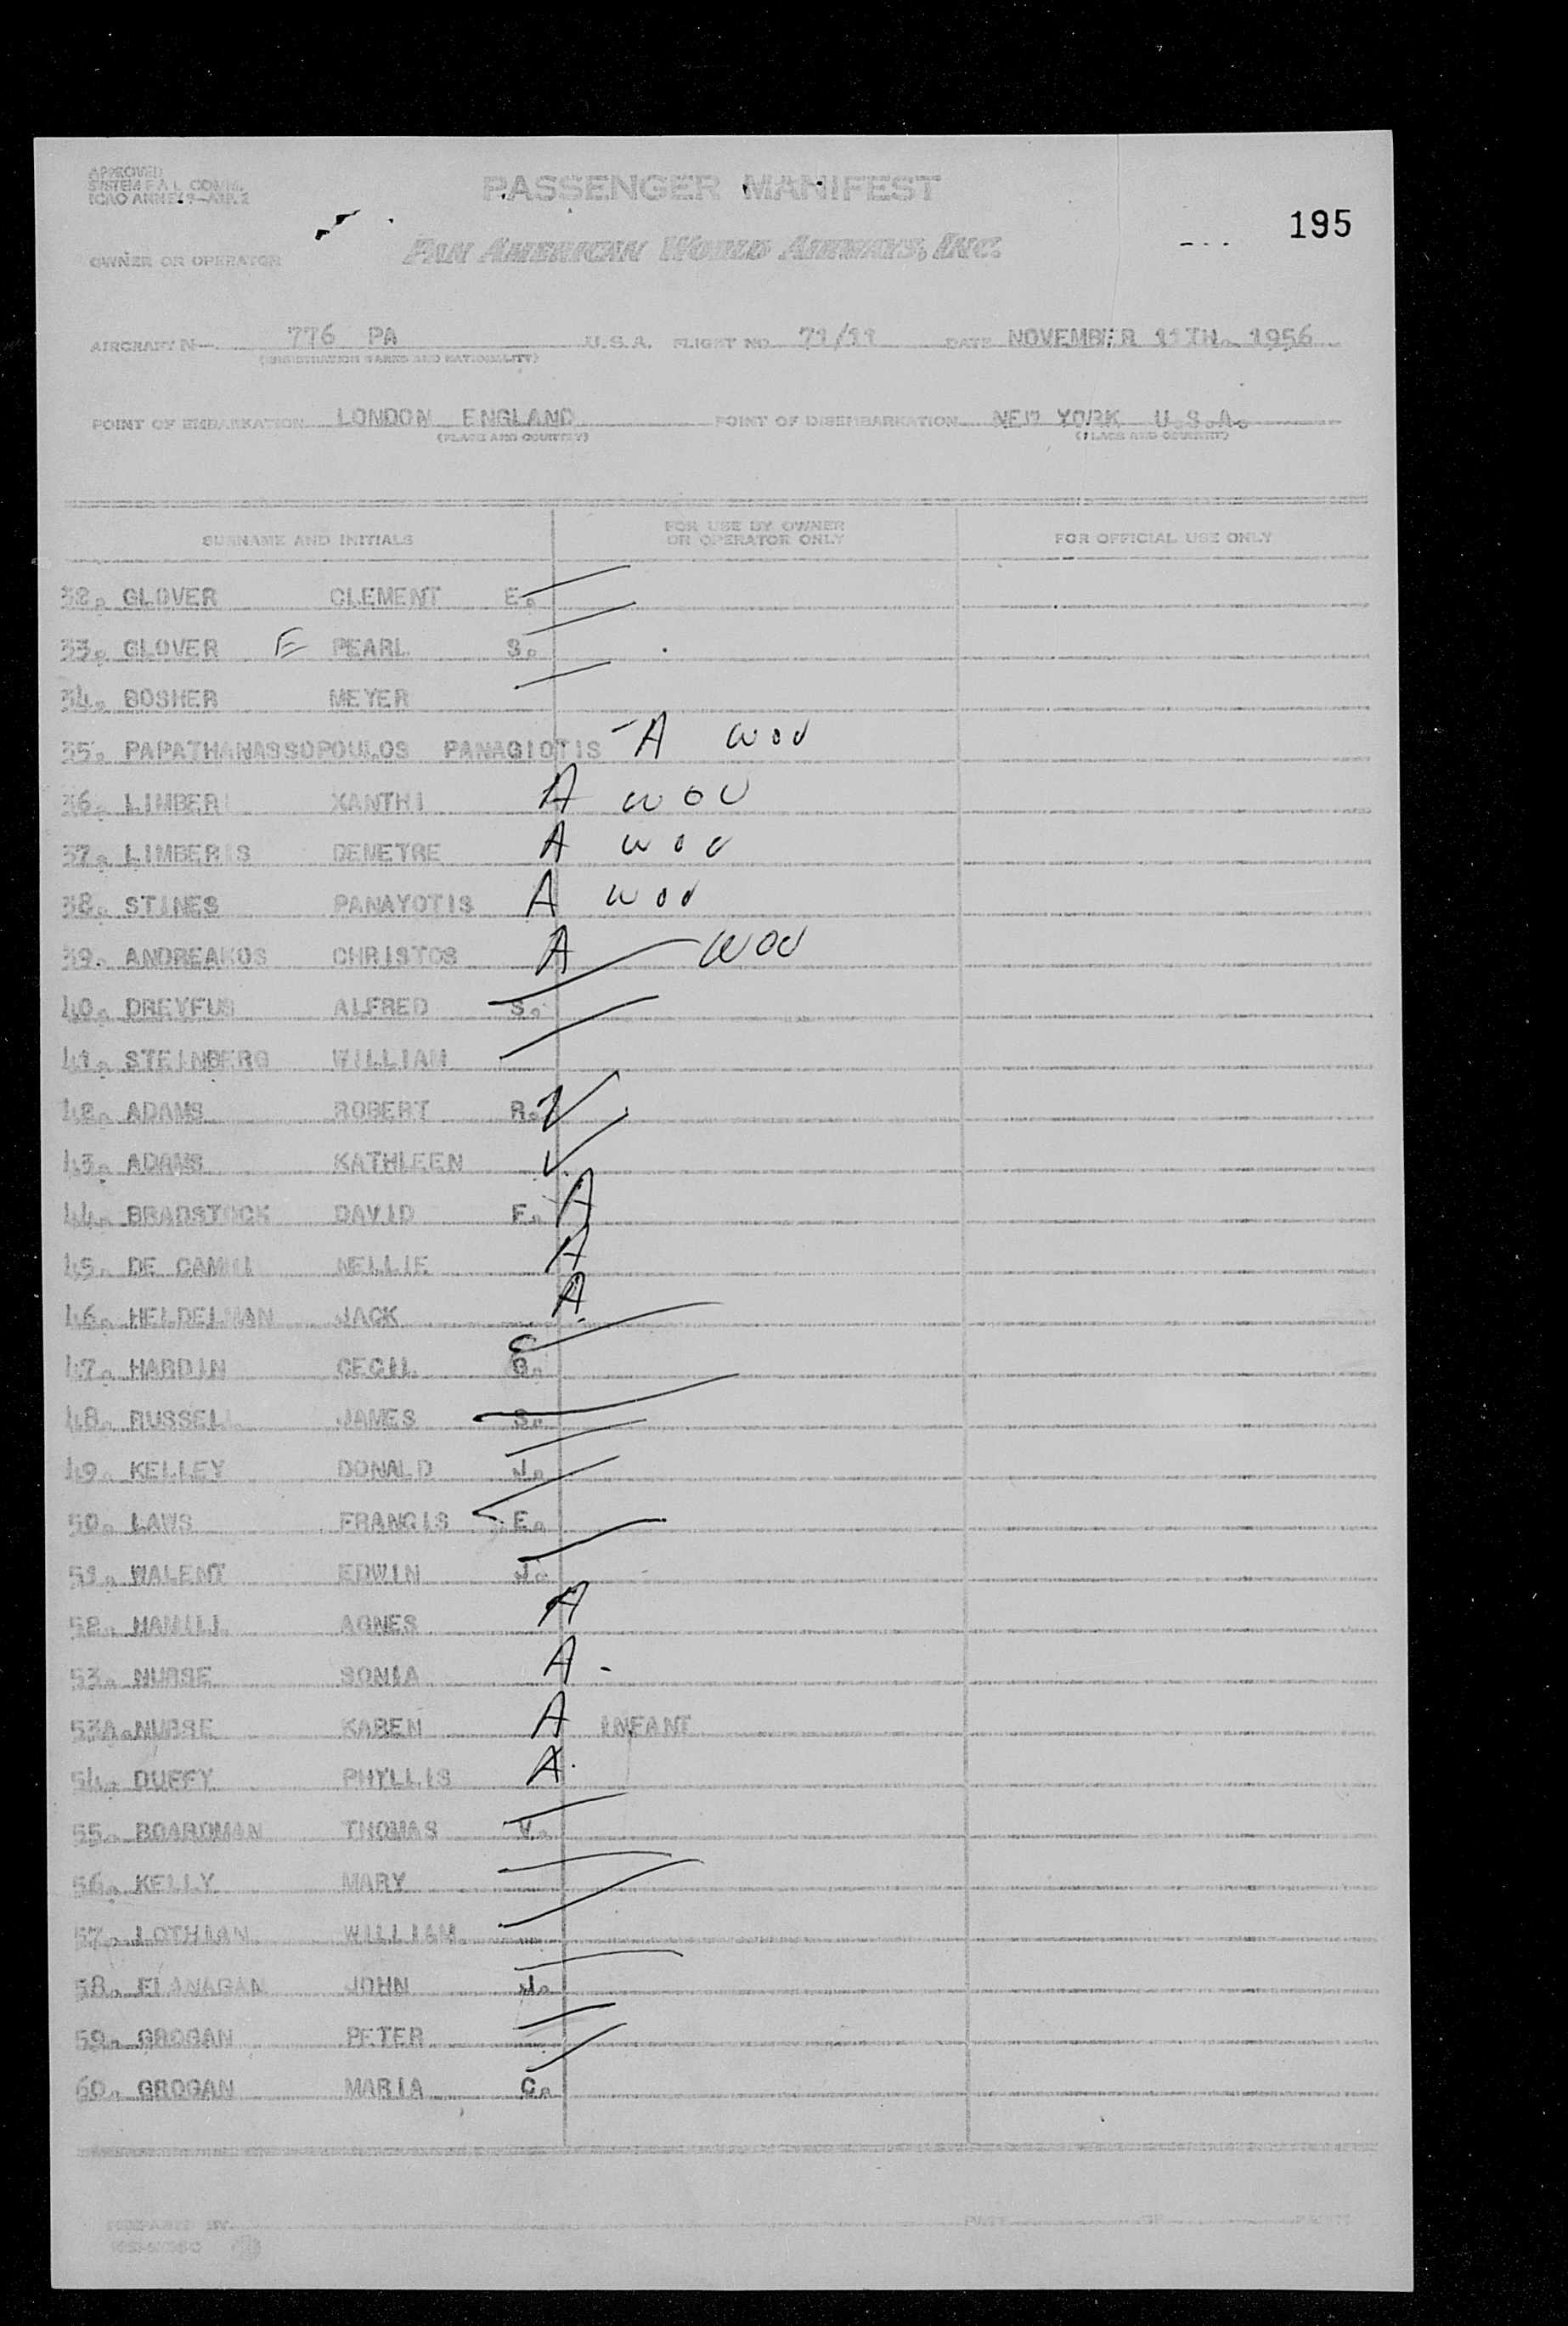 APPROVED
SYSTEM F.A.L. COMM.
ICAO ANNEX 9—APP. 2
PASSENGER MANIFEST
195
OWNER OR OPERATOR PAN AMERICAN WORLD AIRWAYS, INC.
AIRCRAFT N— 776 PA U.S.A. FLIGHT NO. 71/11 DATE NOVEMBER 11TH. 1956
(REGISTRATION MARKS AND NATIONALITY)
POINT OF EMBARKATION LONDON ENGLAND POINT OF DISEMBARKATION NEW YORK U.S.A.
(PLACE AND COUNTRY) (PLACE AND COUNTRY)
SURNAME AND INITIALS FOR USE BY OWNER OR OPERATOR ONLY FOR OFFICIAL USE ONLY
32. GLOVER CLEMENT E.
33. GLOVER E PEARL S.
34. BOSHER MEYER
35. PAPATHANASSOPOULOS PANAGIOTIS A WOV
36. LIMBERI XANTHI A WOV
37. LIMBERIS DEMETRE A WOV
38. STINES PANAYOTIS A WOV
39. ANDREAKOS CHRISTOS A WOV
40. DREYFUS ALFRED S.
41. STEINBERG WILLIAM
42. ADAMS ROBERT R.
43. ADAMS KATHLEEN
44. BRADSTOCK DAVID F. A
45. DE NELLIE A
46. HELDELMAN JACK A
47. HARDIN CECIL G.
48. RUSSELL JAMES S.
49. KELLEY DONALD J.
50. LAWS FRANCIS E.
51. WALENT EDWIN J.
52. HAMILL AGNES A
53. NURSE SONIA A
53A. NURSE KAREN A INFANT
54. DUFFY PHYLLIS A
55. BOARDMAN THOMAS V.
56. KELLY MARY
57. LOTHIAN WILLIAM
58. FLANAGAN JOHN J.
59. GROGAN PETER
60. GROGAN MARIA C.
PREPARED BY PAGE OF PAGES